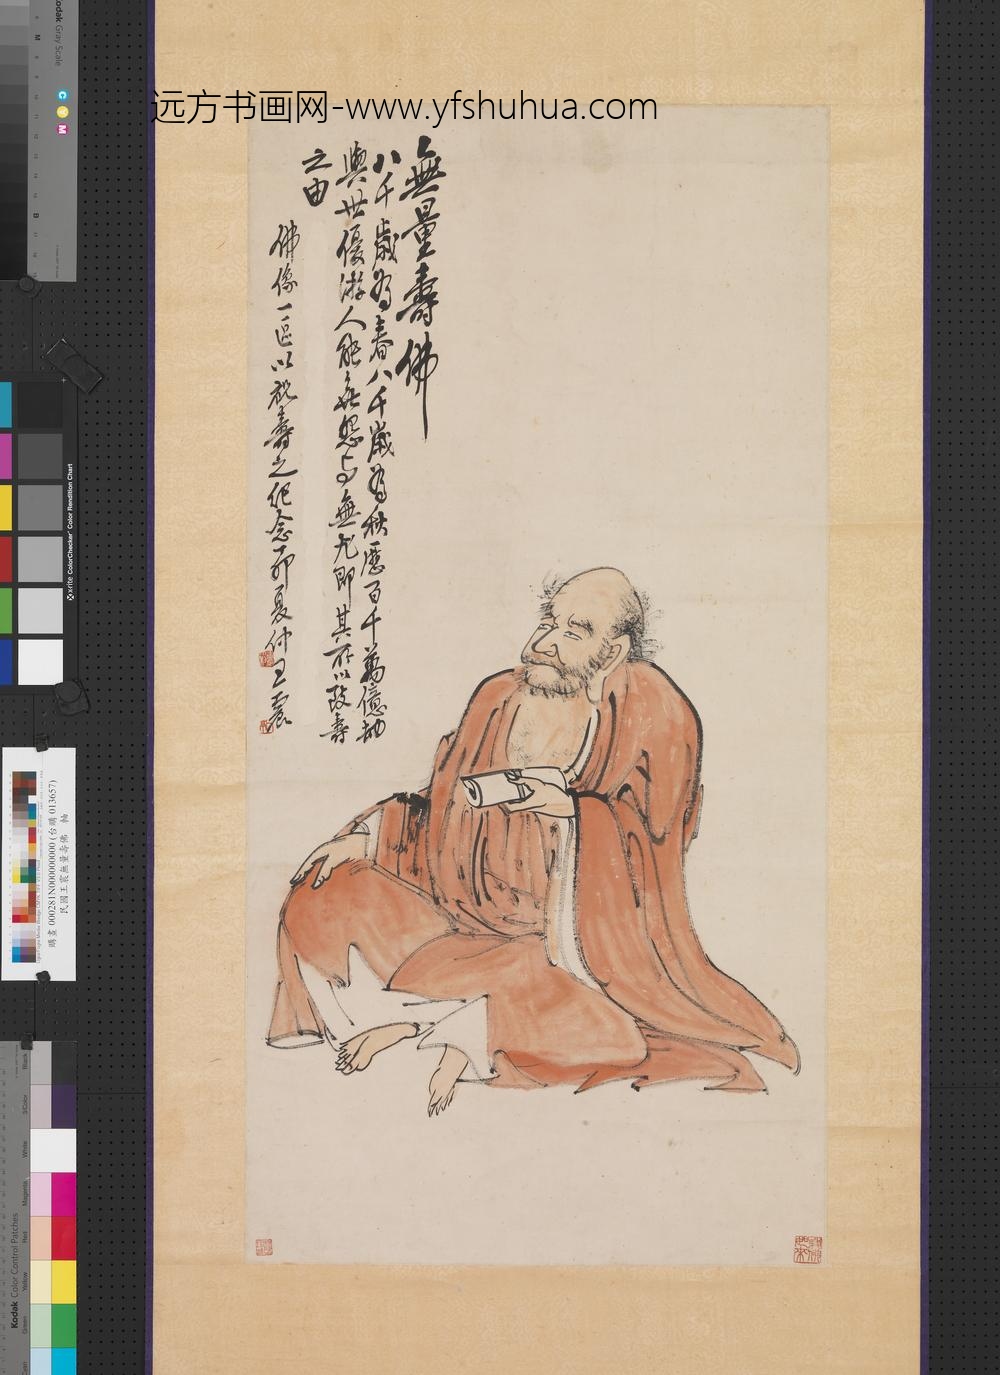 远方书画网-www.yfshuhua.com
無量壽佛
八千歲為春八千歲為秋歷百千萬億劫
與世優游人能無怨与無尤即其所以致壽
之由
佛像一區以祝壽之紀念
夏仲王震
Kodak Gray Scale
C
Y
M
B
xrite ColorChecker Color Rendition Chart
購畫 000281N000000000 (台購 013657)
民國王震無量壽佛 軸
Kodak Color Control Patches
Black
3/Color
White
Magenta
Red
Yellow
Green
Cyan